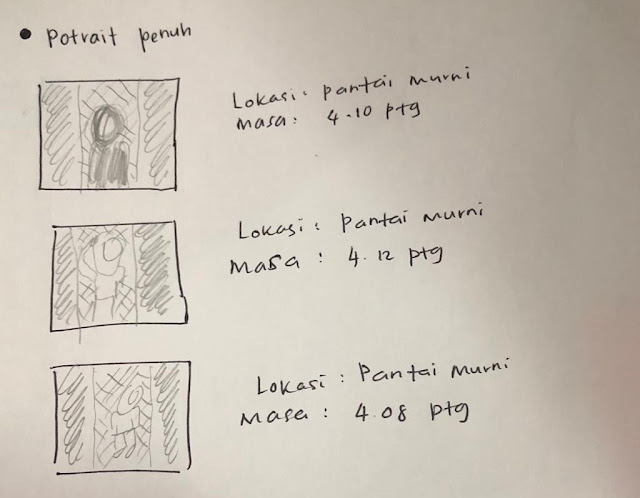 Potrait penuh
Lokasi: Pantai Murni
Masa: 4.10 ptg
Lokasi: Pantai Murni
Masa: 4.12 ptg
Lokasi: Pantai Murni
Masa: 4.08 ptg